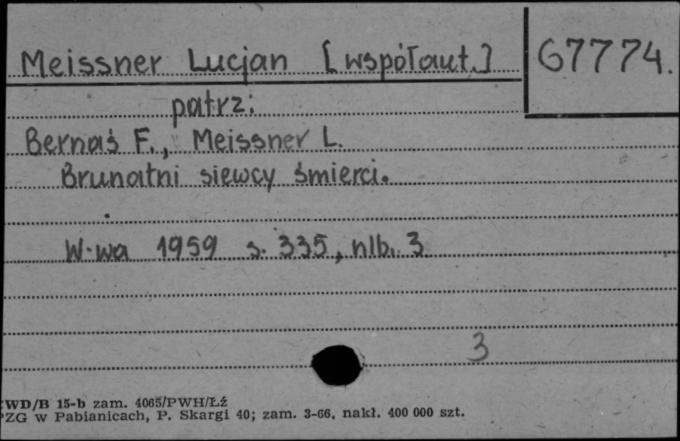 Meissner Lucjan [współaut.] 67774.
patrz:
Bernaś F., Meissner L.
Brunatni siewcy śmierci.
W-wa 1959 s. 335, nlb. 3
3
WD/B 15-b zam. 4065/PWH/Łź
PZG w Pabianicach, P. Skargi 40; zam. 3-66, nakł. 400 000 szt.